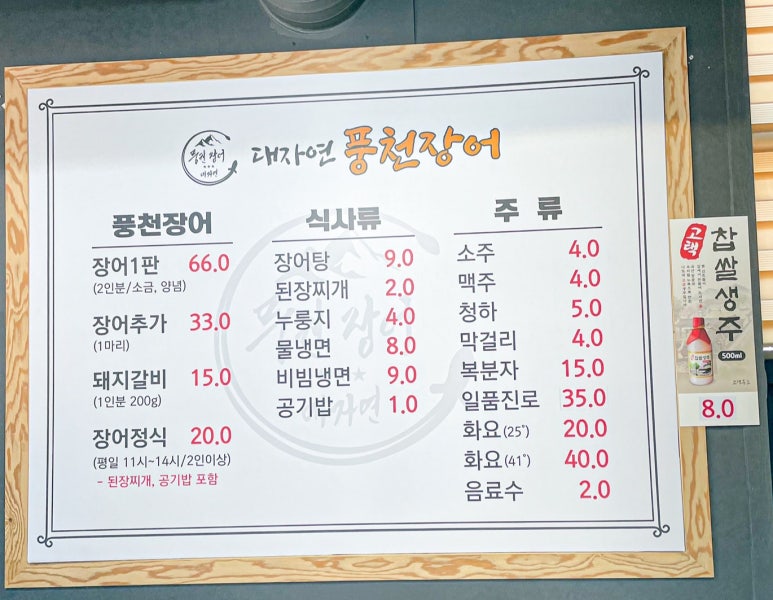 풍천장어
대자연
대자연 풍천장어
풍천장어
장어1판 66.0
(2인분/소금, 양념)
장어추가 33.0
(1마리)
돼지갈비 15.0
(1인분 200g)
장어정식 20.0
(평일 11시~14시/2인이상)
- 된장찌개, 공기밥 포함
식사류
장어탕 9.0
된장찌개 2.0
누룽지 4.0
물냉면 8.0
비빔냉면 9.0
공기밥 1.0
주 류
소주 4.0
맥주 4.0
청하 5.0
막걸리 4.0
복분자 15.0
일품진로 35.0
화요(25°) 20.0
화요(41°) 40.0
음료수 2.0
고택
찹쌀생주
500ml
8.0